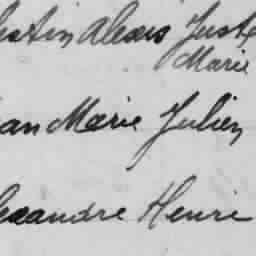 estin Alexis Juste
Marie
ean Marie Julien
lexandre Henri